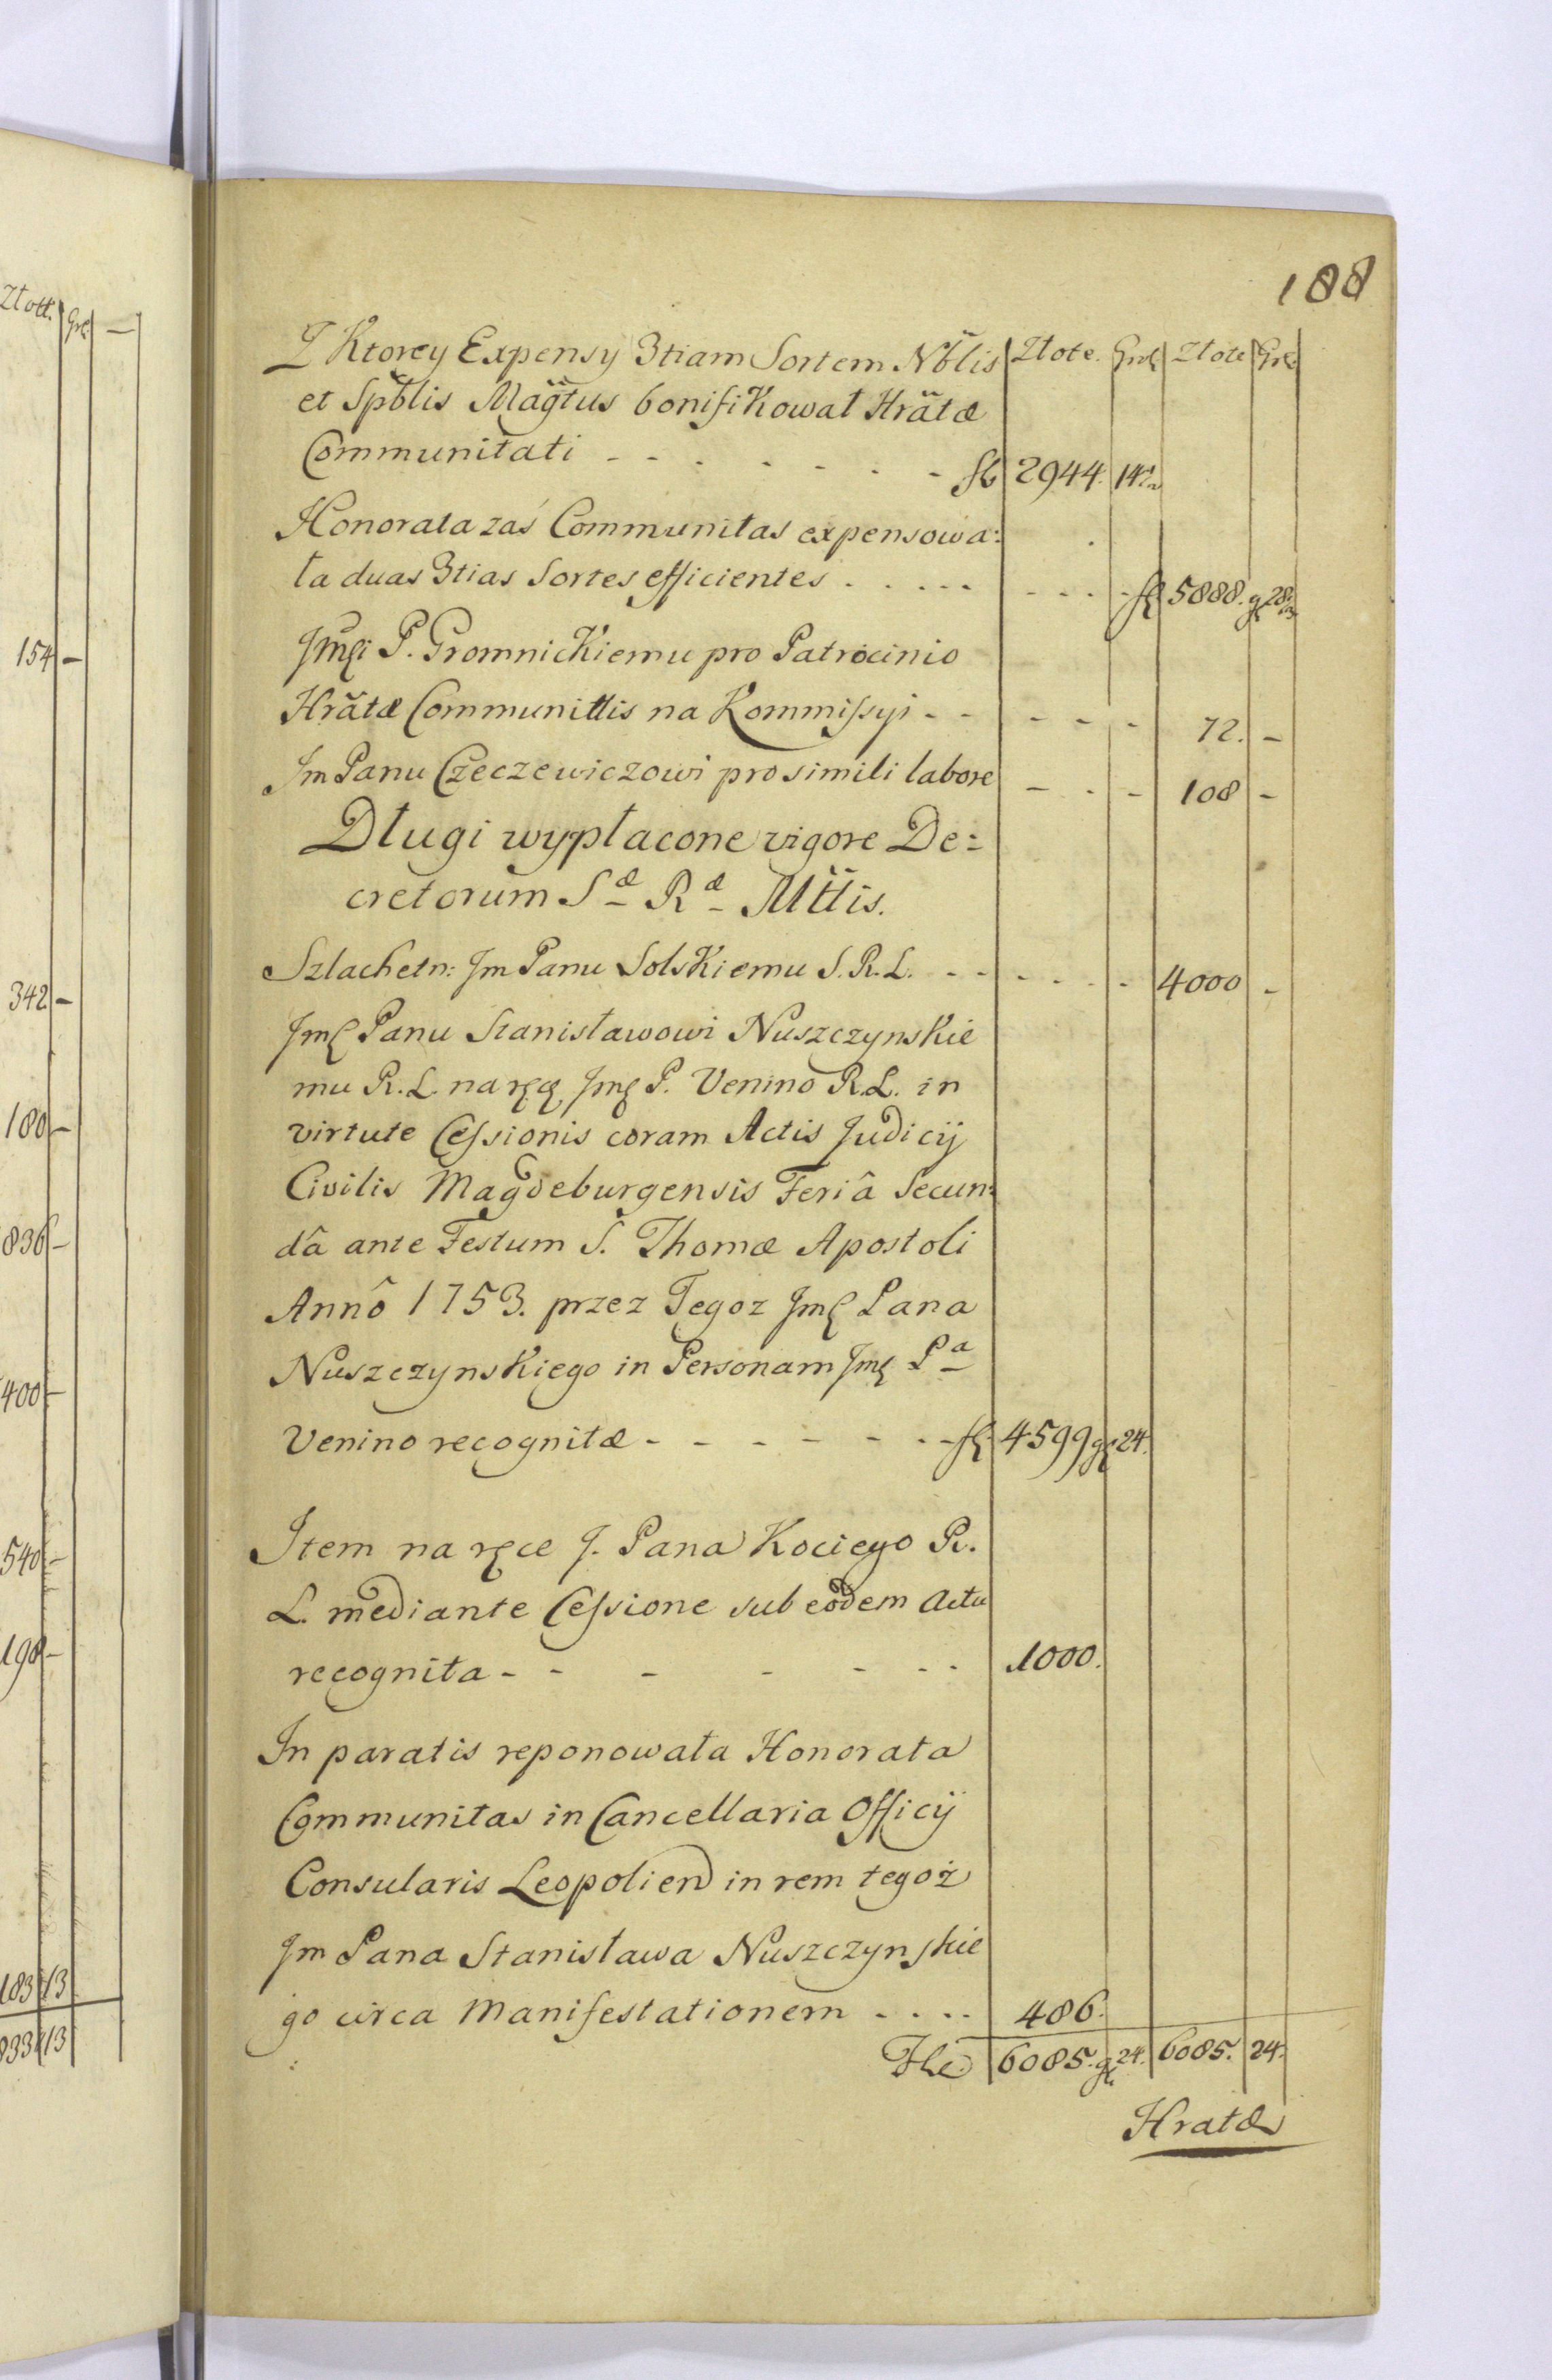 Złott. Gr. —
154 —
342 —
180 —
836 —
400 —
540 —
190 —
183 13
933 13
188
Z Ktorey Expensy 3tiam Sortem Nblis Złote. Gr. Złote Gr.
et Spblis Magtus bonifikował Hratæ
Communitati - - - - - - - fl 2944. 14
Honorata zaś Communitas expensowa:
ła duas 3tias Sortes efficientes . . . . . - - - - fl 5888. g 28
Jmci P. Gromnickiemu pro Patrocinio
Hratæ Communittis na Kommissyi - - - - - 72. -
Jm Panu Czeczewiczowi pro simili labore - - - 108 -
Długi wypłacone vigore De=
cretorum Sæ Ræ Mttis.
Szlachetn: Jm Panu Solskiemu S. R. L. - - - - - - 4000 -
Jmć Panu Stanisławowi Nuszczynskie
mu R. L. na ręce Jmć P. Venino R.L. in
virtute Cessionis coram Actis Judicij
Civilis Magdeburgensis Feriâ Secun=
dâ ante Festum S. Thomæ Apostoli
Annô 1753. przez Tegoz Jmć Pana
Nuszczynskiego in Personam Jmć Pa
Venino recognitæ - - - - - - - fl 4599 g 24.
Item na ręce J. Pana Kociego R.
L. mediante Cessione sub eodem Actu
recognita - - - - - - - 1000.
In paratis reponowała Honorata
Communitas in Cancellaria Officij
Consularis Leopolien in rem tegoż
Jm Pana Stanisława Nuszczynskie
go circa Manifestationem . . . . 486.
Flć 6085. g 24. 6085. 24.
Hratæ